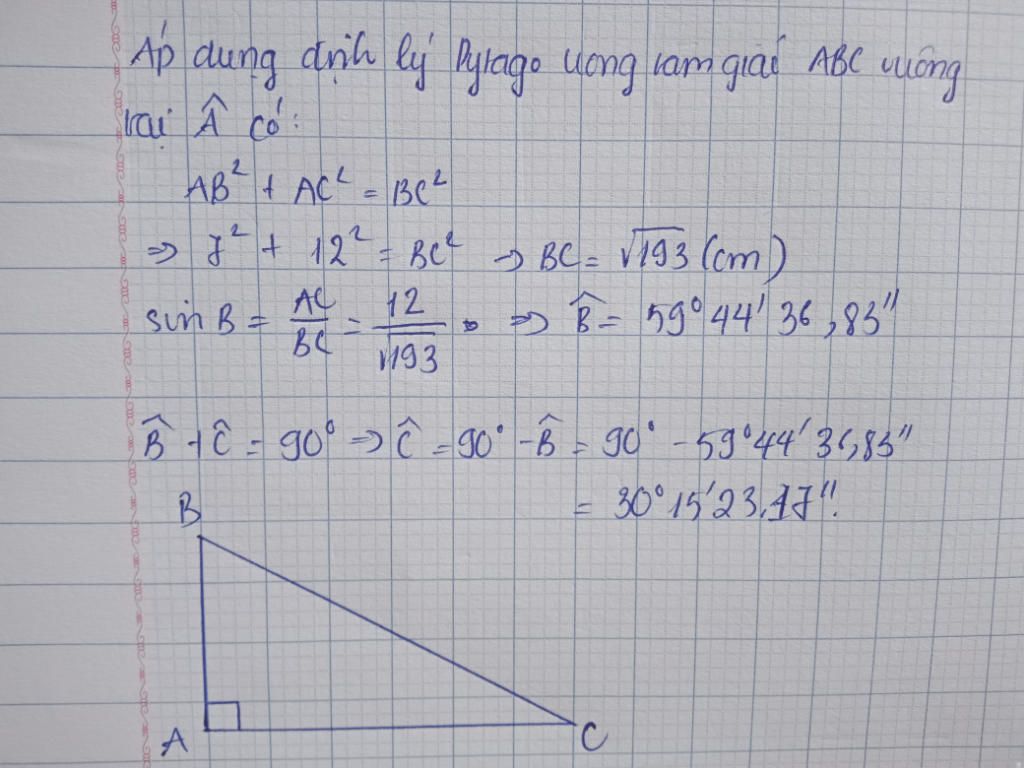 Áp dụng định lý Pytago trong tam giác ABC vuông
tại Â có:
AB² + AC² = BC²
⇒ 7² + 12² = BC² → BC = √193 (cm)
sin B = AC/BC = 12/√193 . ⇒ B̂ = 59° 44' 36,83"
B̂ + Ĉ = 90° ⇒ Ĉ = 90° - B̂ = 90° - 59°44'36,83"
= 30°15'23,17".
B
A
C